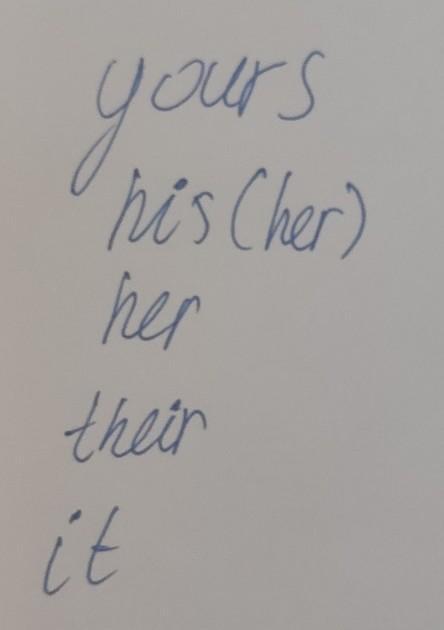 yours
his (her)
her
their
it